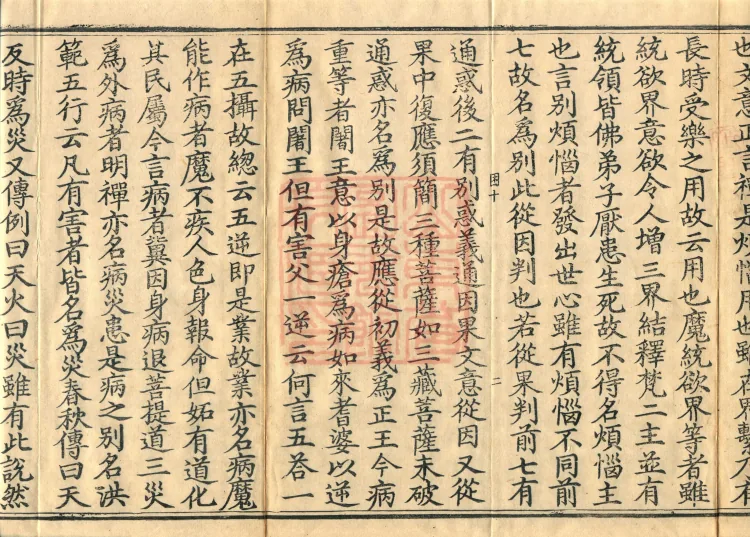 長時受樂之用故云用也魔統欲界等者雖
統欲界意欲令人增三界結釋梵二主並有
統領皆佛弟子厭患生死故不得名煩惱主
也言別煩惱者發出世心雖有煩惱不同前
七故名為別此從因判也若從果判前七有
二
通惑後二有別惑義通因果文意從因又從
果中復應須簡三種菩薩如三藏菩薩未破
通惑亦名為別是故應從初義為正王今病
重等者闍王意以身瘡為病如來耆婆以逆
為病問闍王但有害父一逆云何言五荅一
在五攝故緫云五逆即是業故業亦名病魔
能作病者魔不疾人色身報命但妬有道化
其民屬今言病者冀因身病退菩提道三災
為外病者明禪亦名病災患是病之別名洪
範五行云凡有害者皆名為災春秋傳曰天
反時為災又傳例曰天火曰災雖有此說然